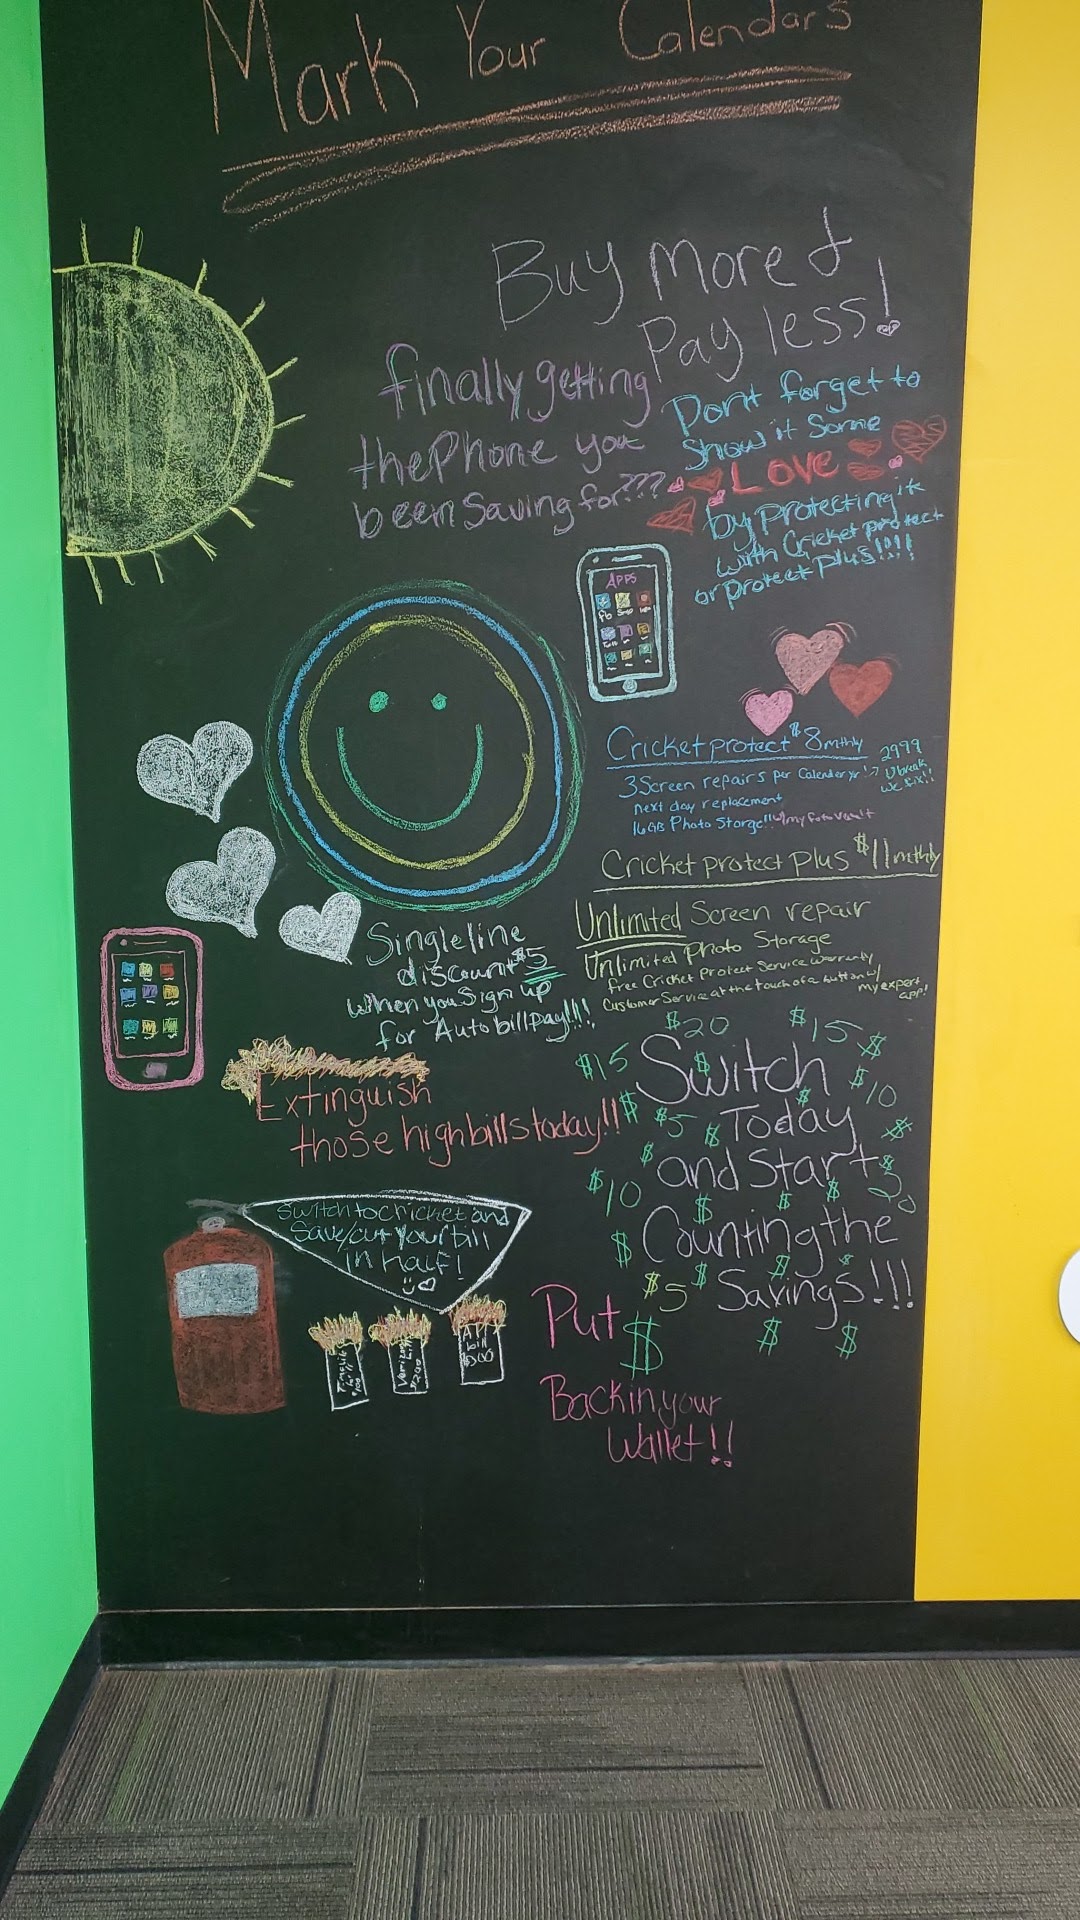 Mark Your Calendars
Buy More &
Pay less!
finally getting
the Phone you
been Saving for???
Don't forget to
Show it Some
LOVE
by Protecting it
with Cricket protect
or protect plus!!!!
APPS
Cricket protect $8 mthly
3 Screen repairs per Calender yr!
2999
U break
We fix!!
next day replacement
16GB Photo Storge!! my fotovault
Cricket protect plus $11 mthly
Unlimited Screen repair
Unlimited Photo Storage
free Cricket Protect Service warranty
Customer Service at the touch of a button w/
my expert
app!
Single line
discount $5
When you Sign up
for Auto bill pay!!!!
Extinguish
those high bills today!!
Switch to cricket and
Save/cut Your bill
in half!
bill
$200
$20 $15 $
$15 $ $10
Switch
$ $5 $ $
Today
$ $10 $ $
and Start
$ $ $
Counting the
$5 $ $ $
Savings!!!
$ $
Put $
Back in your
Wallet!!